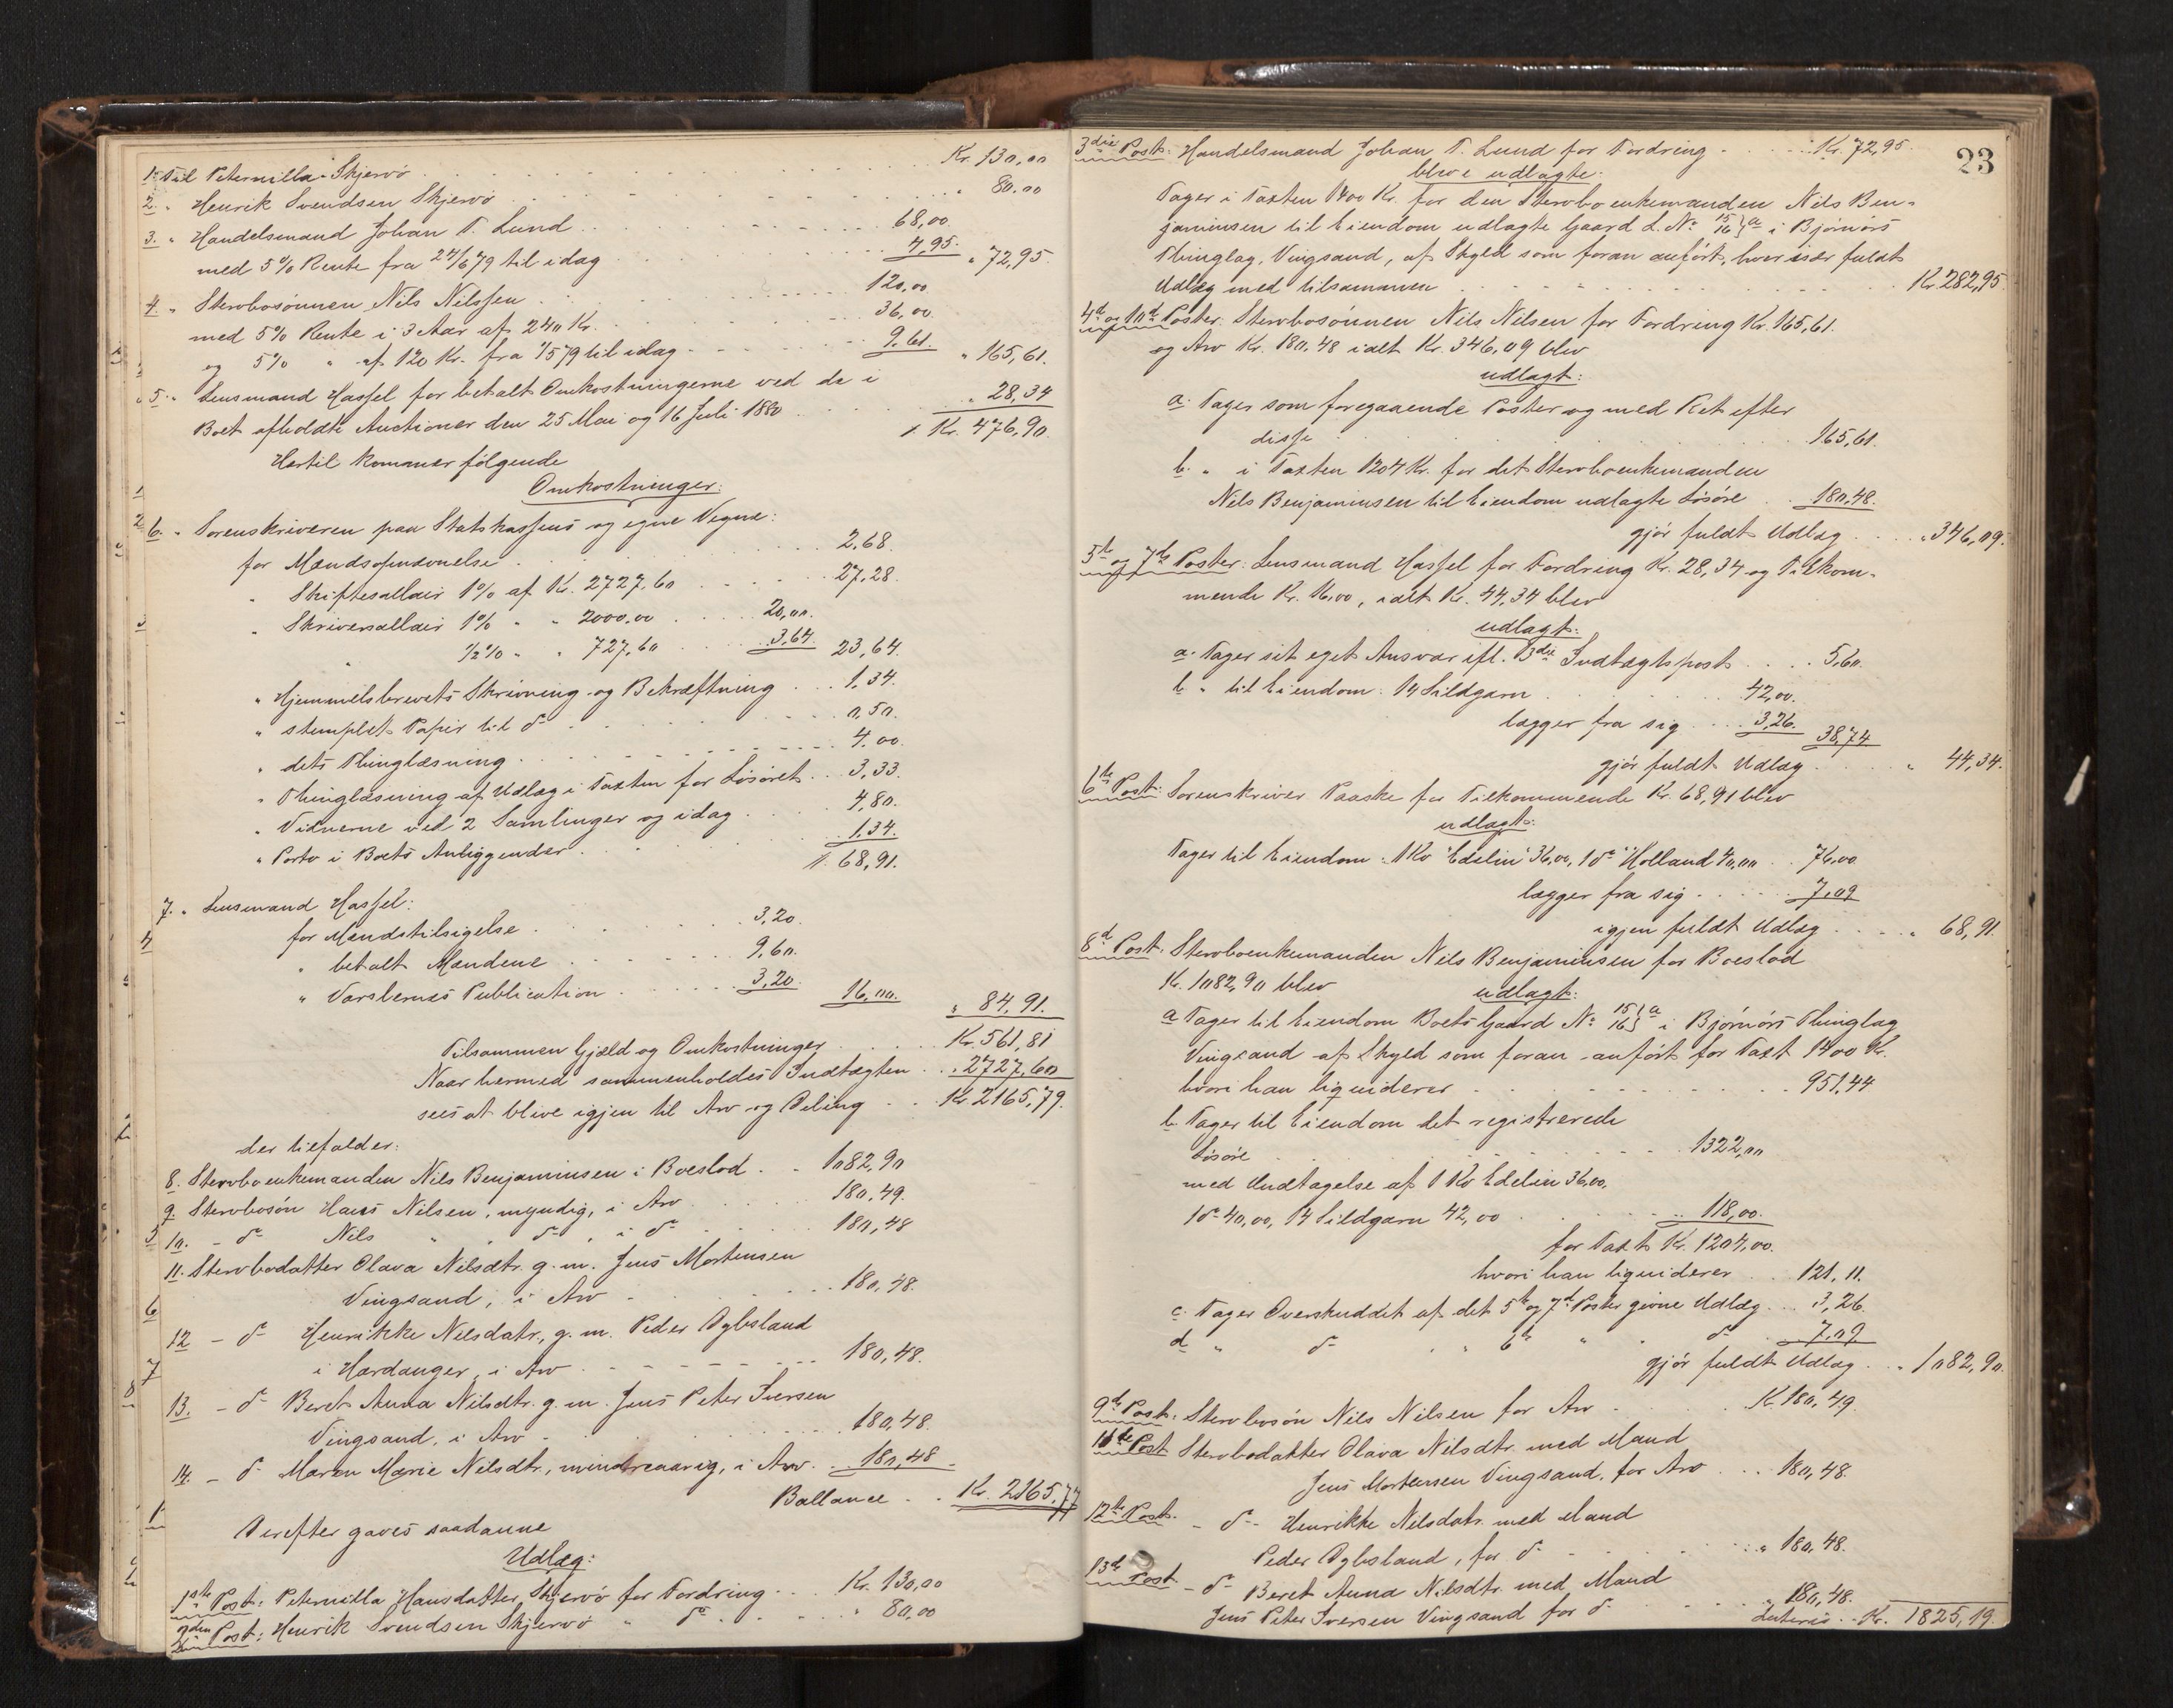 1. Til Peternilla Skjervö . . . Kr. 130,00
2. " Henrik Svendsen Skjervö . . . " 80.00
3. " Handelsmand Johan T. Lund . . . 68,00
med 5% Rente fra 27/6 79 til idag . . . 4,95. " 72,95
4. " Stervbosönnen Nils Nilssen . . . 120,00
med 5% Rente i 3 Aar af 240 Kr. . . . 36,00.
og 5% " af 120 Kr. fra 1/5 79 til idag . . . 9,61. " 165,61.
5. " Lensmand Hassel for betalt Omkostningerne ved de i
Boet afholdte Auctioner den 25 Mai og 16 Juli 1880 . . . " 28,34
/. Kr. 476,90
Hertil kommer fölgende
Omkostninger:
6. " Sorenskriveren paa Statskassens og egne Vegne:
for Mændsopnævnelse . . . 2,68.
" Skiftesallair 1% af Kr. 2727,60 . . . 27,28.
" Skriversallair 1% " " 2000.00 . . . 20,00.
" 1/2% " " 727,60 . . . 3,64. 23,64.
" Hjemmelsbrevets Skrivning og Bekræftning . . . 1,34.
" stemplet Papir til do . . . 0,50.
" dets Thinglæsning . . . 4.00.
" Thinglæsning af Udlæg i Taxten for Lösöret . . . 3,33.
" Vidnerne ved 2 Samlinger og idag . . . 4,80.
" Porto i Boets Anliggender . . . 1,34.
/. 68,91.
7. " Lensmand Hassel:
for Mændstilsigelse . . . 3,20.
" betalt Mændene . . . 9,60.
" Varslernes Publication . . . 3,20. 16,00. " 84,91.
Tilsammen Gjæld og Omkostninger . . . Kr. 561,81
Naar hermed sammenholdes Indtægten . . . " 2727,60
sees at blive igjen til Arv og Deling . . . Kr. 2165,79.
der tilfalder:
8. Stervboenkemanden Nils Benjaminsen i Boeslod . . 1082,90
9. Stervbosön Hans Nilsen, myndig, i Arv . . . 180,49.
10. - do Nils " " do , i do . . . 180,48
11. Stervbodatter Olava Nilsdtr. g. m. Jens Mortensen
Vingsand, i Arv . . . 180,48.
12 - do Henrikke Nilsdatr., g. m. Peder
i Hardanger, i Arv . . . 180,48.
13. - do Beret Anna Nilsdtr. g. m. Jens Peter Iversen
Vingsand, i Arv . . . 180,48.
14. - do Maren Marie Nilsdtr., mindreaarig, i Arv . . 180,48
Ballance . . Kr. 2165,77
Derefter gaves saadanne
Udlæg:
1ste Post: Peternilla Hansdatter Skjervö for Fordring . . . Kr. 130,00
2den Post: Henrik Svendsen Skjervö " do . . . " 80,00
23
3die Post: Handelsmand Johan T. Lund for Fordring . . . Kr. 72,95.
bleve udlagte:
Tager i Taxten 1400 Kr. for den Stervboenkemanden Nils Ben-
jaminsen til Eiendom udlagte Gaard L. No 15/16 } a i Bjørnørs
Thinglag, Vingsand, af Skyld som foran anfört, hver især fuldt
Udlæg med tilsammen . . . Kr. 282,95.
4de og 10de Poster: Stervbosönnen Nils Nilsen for Fordring Kr. 165,61.
og Arv Kr. 180,48 ialt Kr. 346,09 blev
udlagt:
a. Tager som foregaaende Poster og med Ret efter
disse . . . 165,61.
b. " i Taxten 1204 Kr. for det Stervboenkemanden
Nils Benjaminsen til Eiendom udlagte Lösöre . . 180,48.
gjör fuldt Udlæg . . . " 346,09.
5te og 7de Poster: Lensmand Hassel for Fordring Kr. 28,34 og Tilkom-
mende Kr. 16,00, ialt Kr. 44,34 blev
udlagt:
a. Tager sit eget Ansvar ifl. 3die Indtægtspost . . . 5,60.
b. " til Eiendom: 14 Sildgarn . . . 42,00.
lægger fra sig . . . 3,26. 38,74
gjör fuldt Udlæg . . . " 44,34.
6te Post: Sorenskriver Paaske for Tilkommende Kr. 68,91 blev
udlagt:
Tager til Eiendom: 1 Ko "Edelin" 36,00, 1 do "Holland" 40,00 . . 76,00
lægger fra sig . . . 7,09
igjen fuldt Udlæg . . . " 68,91.
8de Post: Stervboenkemanden Nils Benjaminsen for Boeslod
Kr. 1082,90 blev udlagt:
a Tager til Eiendom Boets Gaard No 15/16 } a i Bjørnørs Thinglag
Vingsand af Skyld som foran anfört for Taxt 1400 Kr.
hvori han liqviderer . . . 951,44
b. Tager til Eiendom det registrerede
Lösöre . . . 1322,00
med Undtagelse af 1 Ko Edelin 36,00,
1 do 40,00, 14 Sildgarn 42,00 . . . 118,00.
for Taxt Kr. 1204,00.
hvori han liqviderer . . . 121,11.
c. Tager Overskuddet af det 5te og 7de Poster givne Udlæg . . . 3,26.
d " do " " 6te " " do . . 7,09
gjör fuldt Udlæg . . . " 1082,90.
9de Post: Stervbosön Nils Nilsen for Arv . . . Kr. 180,49.
11te Post Stervbodatter Olava Nilsdtr. med Mand
Jens Mortensen Vingsand, for Arv . . . 180,48.
12te Post. - do - Henrikke Nilsdatr. med Mand
Peder , for do . . . " 180,48.
13de Post - do Beret Anna Nilsdtr. med Mand
Jens Peter Iversen Vingsand for do . . . " 180,48.
Lateris . . Kr. 1825,19.